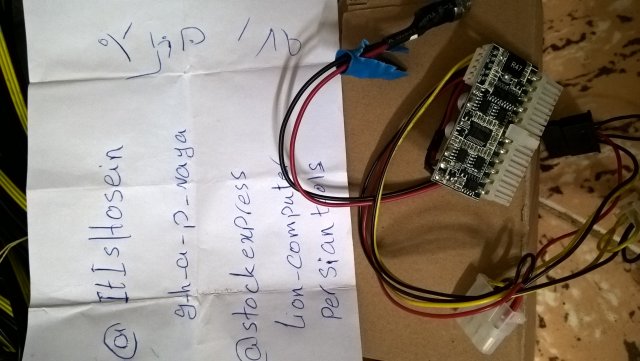 @ ItIsHosein
gh-a-p-naya
@stockexpress
lion-computer
persiantools